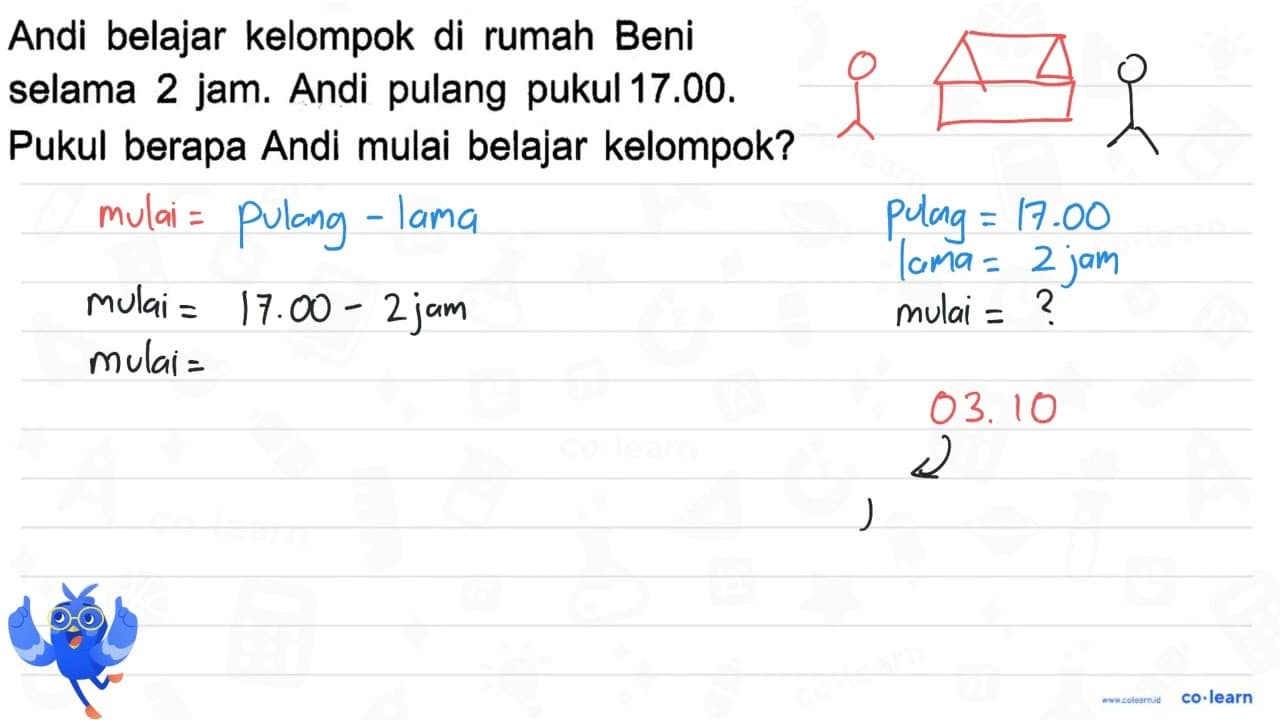 Andi belajar kelompok di rumah Beni
selama 2 jam. Andi pulang pukul 17.00.
Pukul berapa Andi mulai belajar kelompok?
mulai = pulang - lama
pulang = 17.00
lama = 2 jam
mulai = 17.00 - 2 jam
mulai = ?
mulai =
03.10
www.colearn.id co·learn